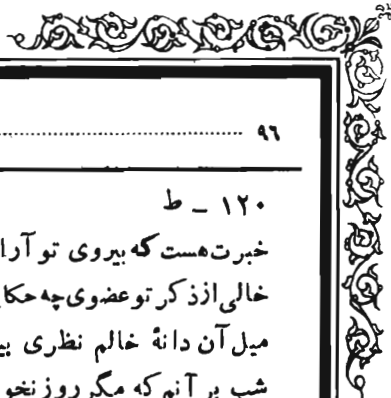 ۹۶
۱۲۰ ـ ط
خبرت هست که بیروی تو آرا
خالی از ذکر تو عضوی چه حکا
میل آن دانهٔ خالم نظری بی
شب بر آنم که مگر روز نخو